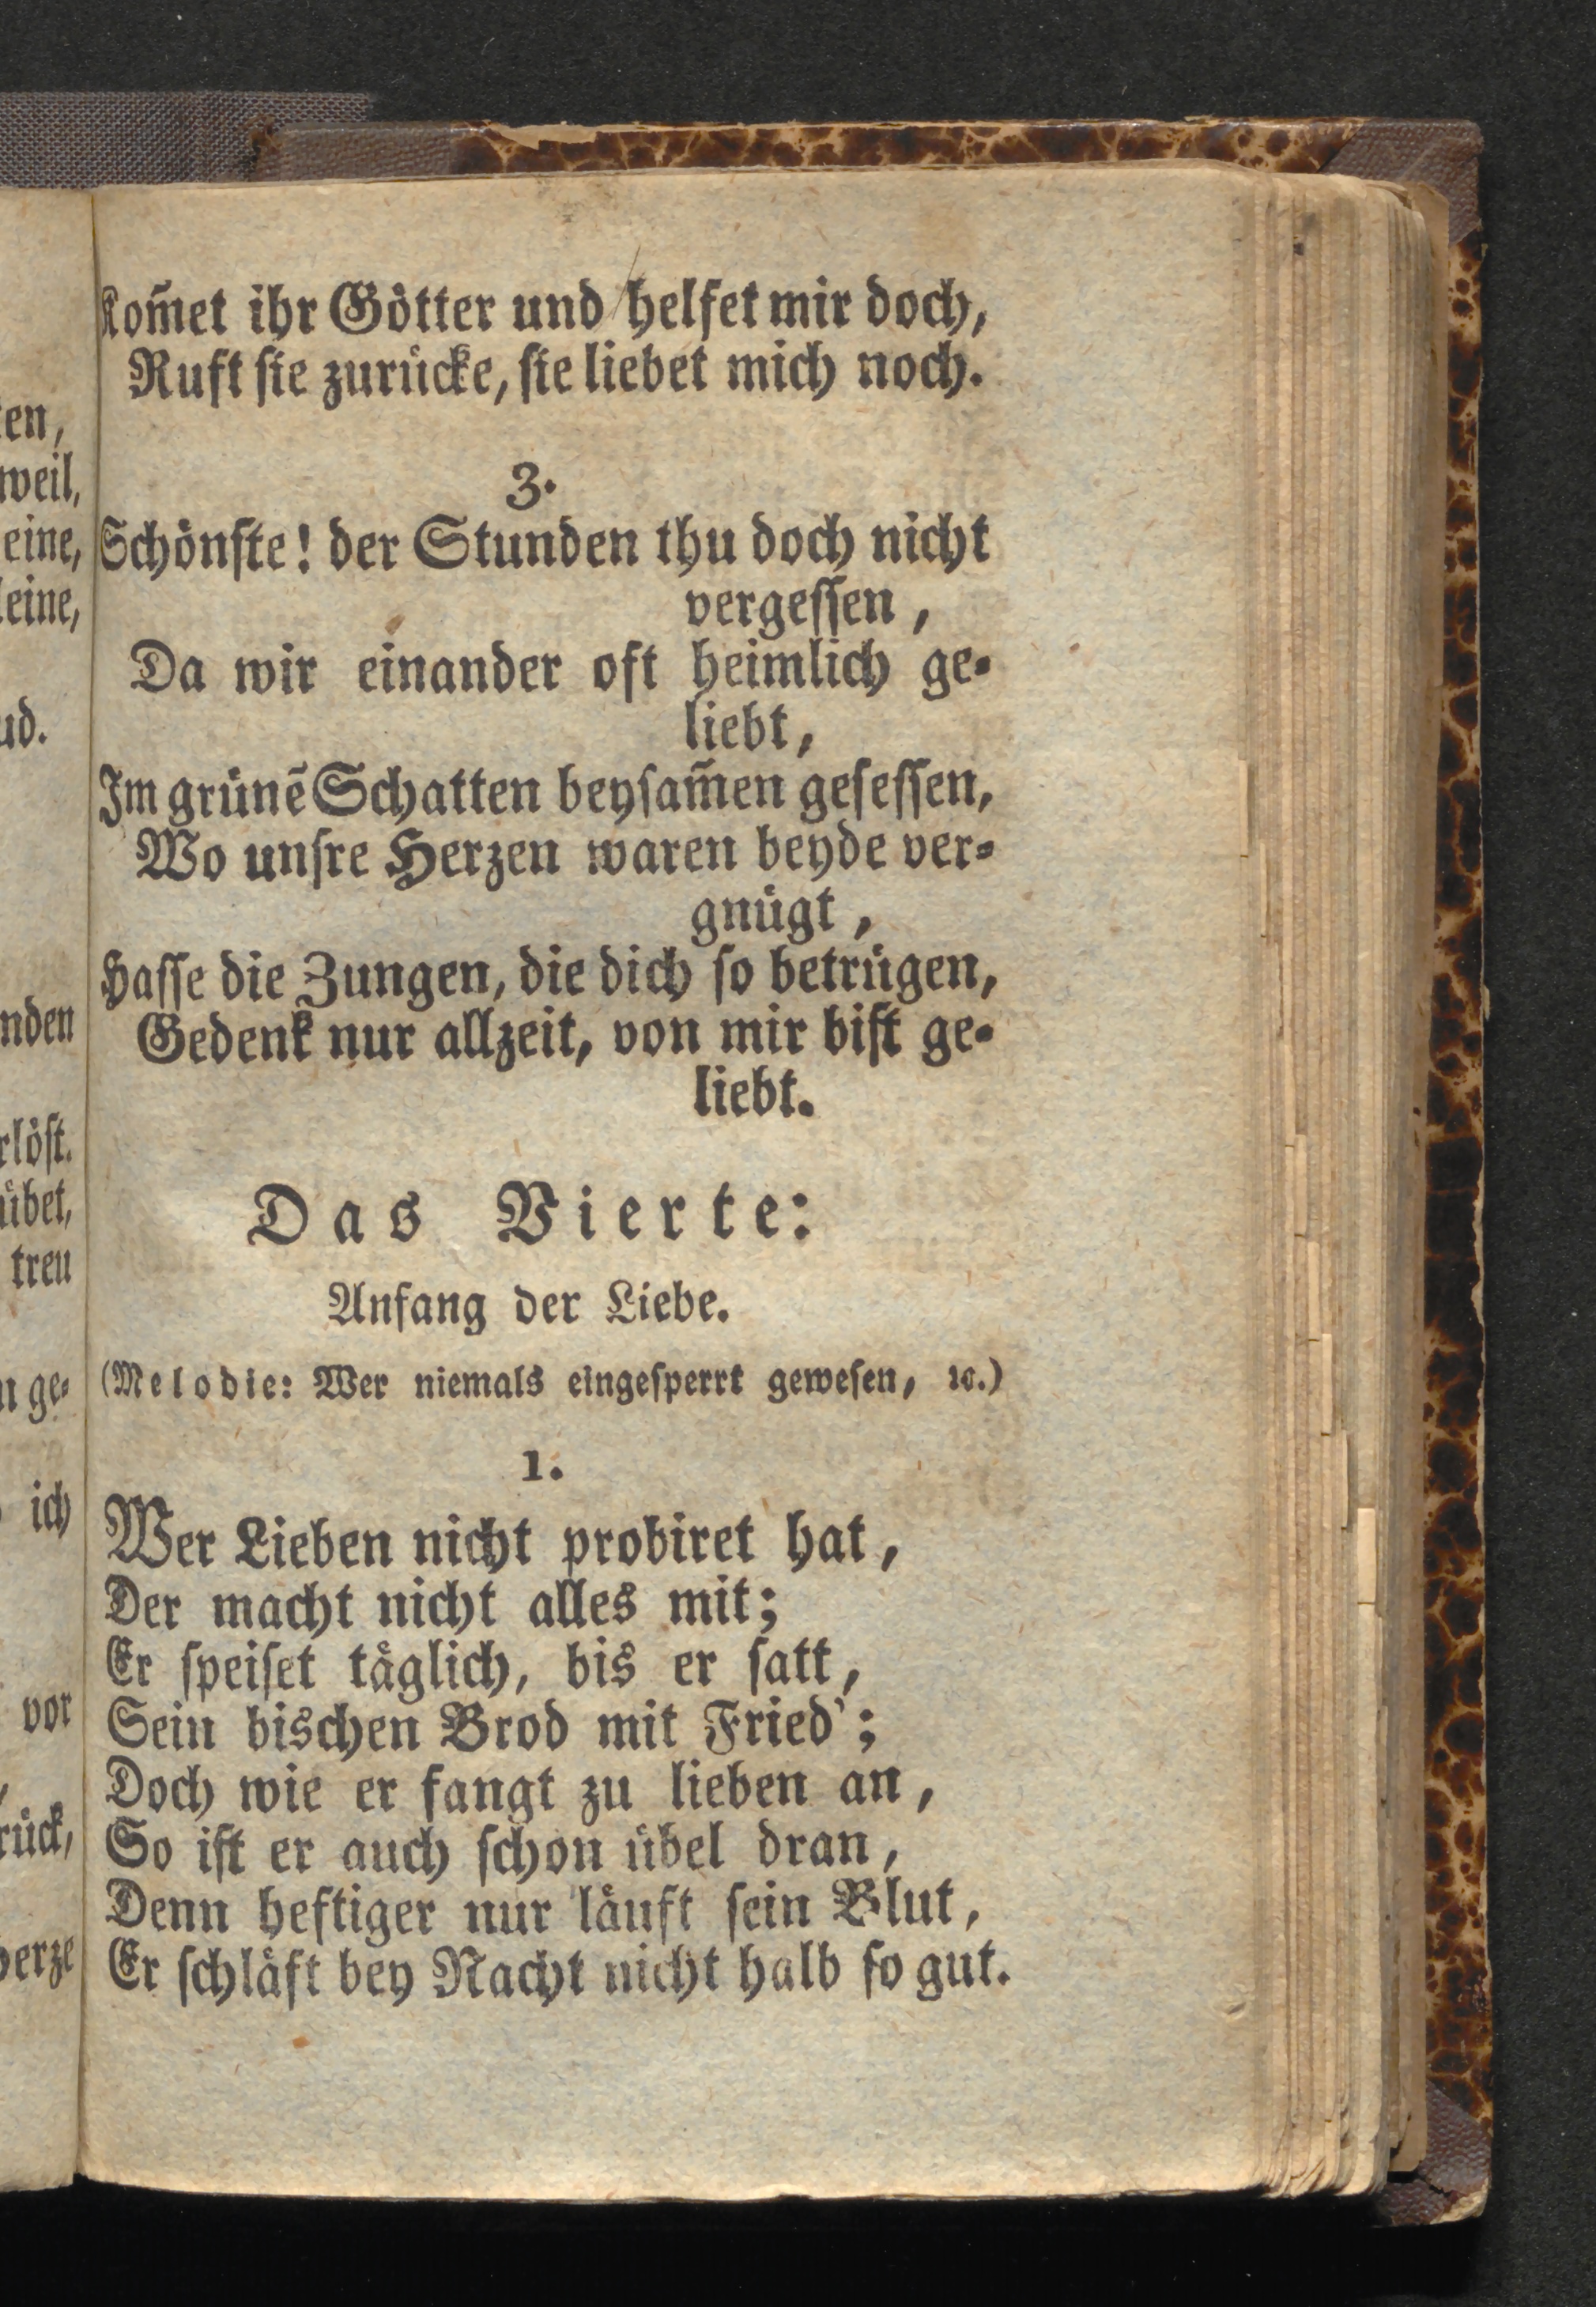 Kom̃et ihr Götter und helfet mir doch,
Ruft sie zurücke, sie liebet mich noch.
3.
Schönste! der Stunden thu doch nicht
vergessen,
Da wir einander oft heimlich ge-
liebt,
Im grünẽ Schatten beysam̃en gesessen,
Wo unsre Herzen waren beyde ver-
gnügt,
Hasse die Zungen, die dich so betrügen,
Gedenk nur allzeit, von mir bist ge-
liebt.
Das Vierte:
Anfang der Liebe.
(Melodie: Wer niemals eingesperrt gewesen, ꝛc.)
1.
Wer Lieben nicht probiret hat,
Der macht nicht alles mit;
Er speiset täglich, bis er satt,
Sein bischen Brod mit Fried';
Doch wie er fangt zu lieben an,
So ist er auch schon übel dran,
Denn heftiger nur läuft sein Blut,
Er schläft bey Nacht nicht halb so gut.